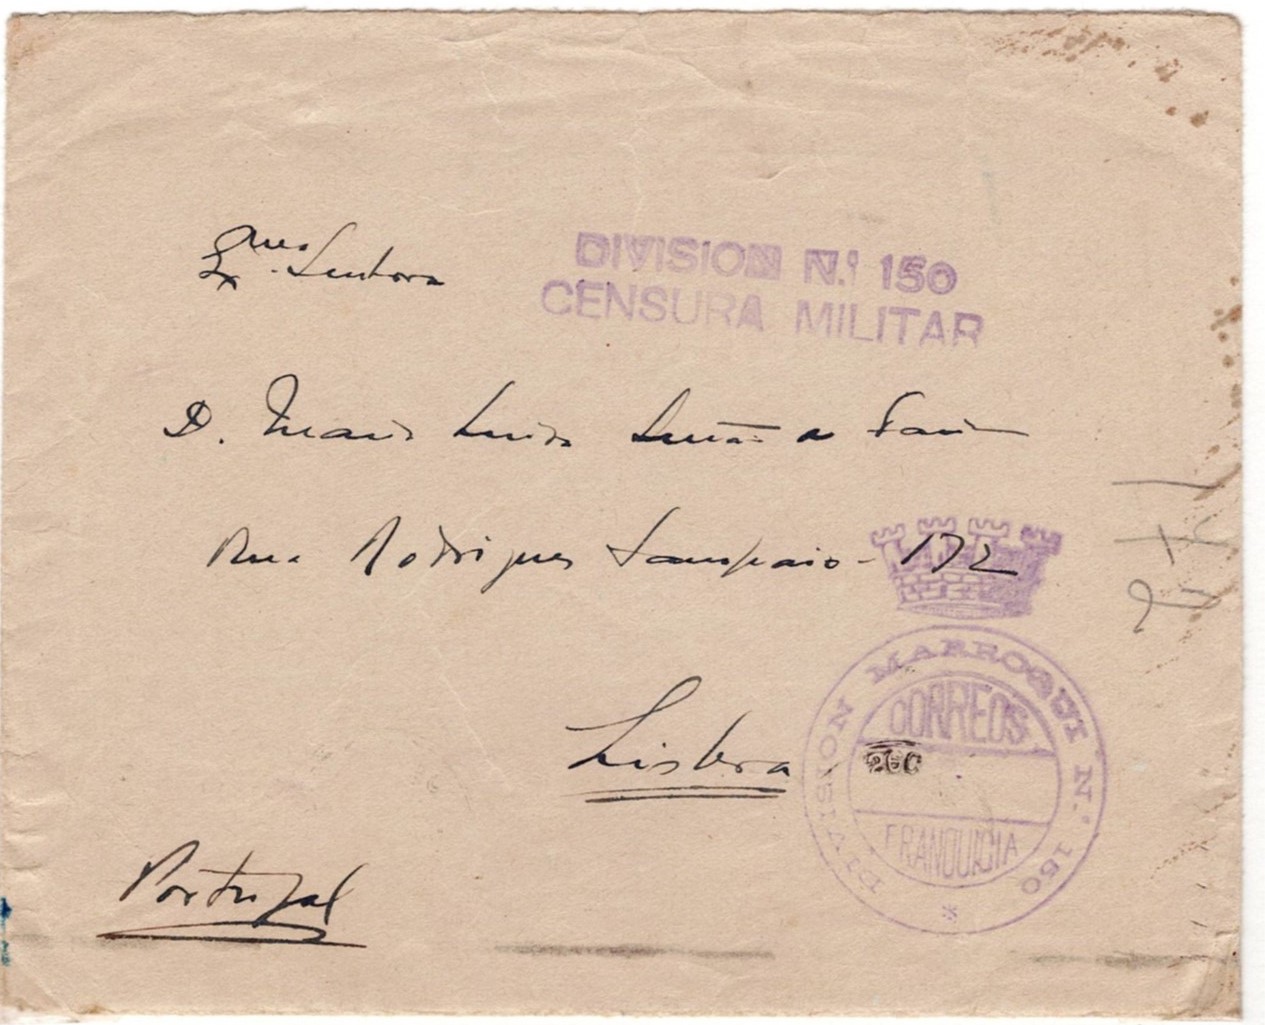 Exma. Senhora
DIVISION N.º 150
CENSURA MILITAR
D. Maria Luisa
Rua Rodrigues Sampaio - 172
DIVISION MARROQUI N.º 150
CORREOS
FRANQUICIA
*
Lisboa
Portugal